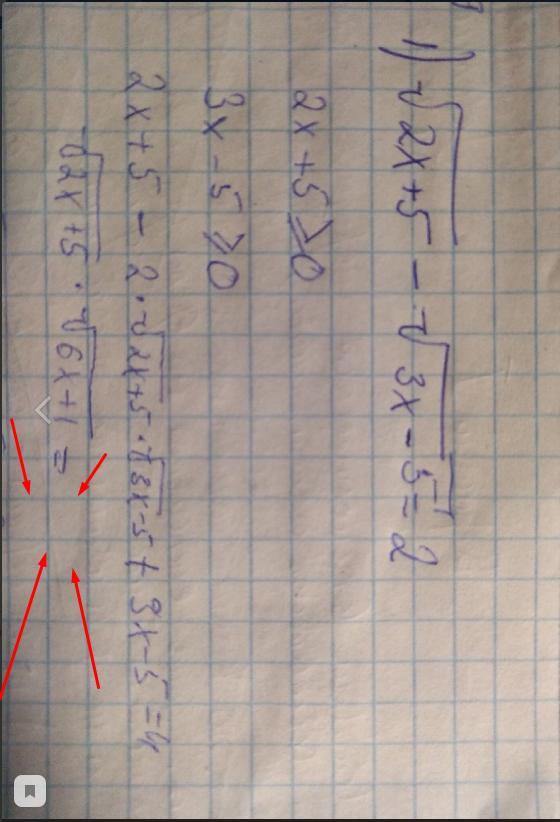 1) √2x+5 - √3x-5 = 2
2x+5 ⩾ 0
3x-5 ⩾ 0
2x+5 - 2·√2x+5·√3x-5 + 3x-5 = 4
√2x+5 · √6x+1 =